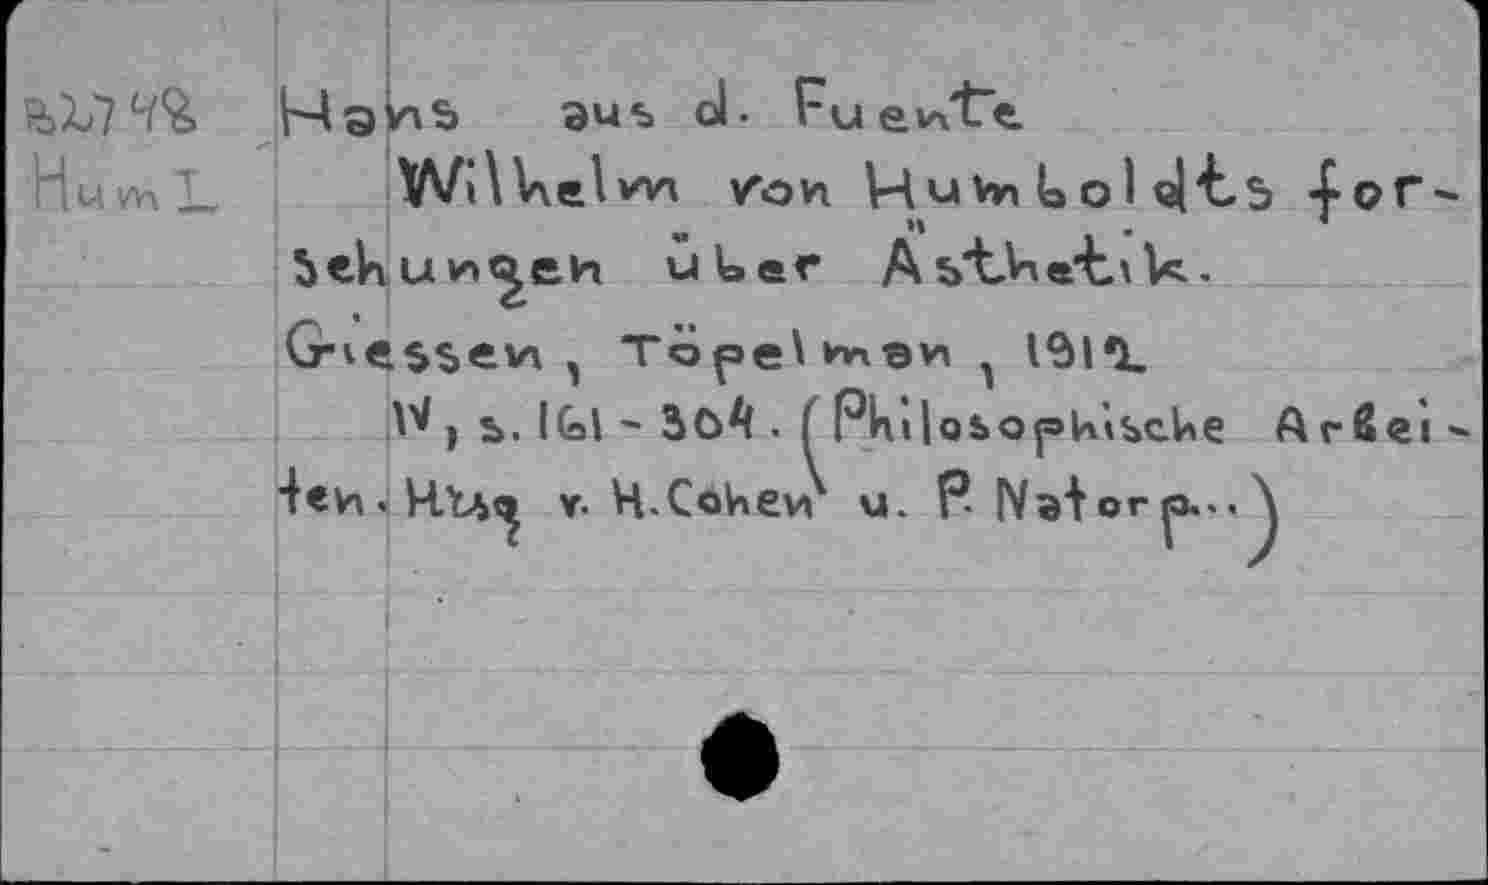 Hans aus d. Fuente
Hum I
Wilhelm von Humboldts for-
schungen über Ästhetik.
Giessen, Töpelman, 1912
IV, s. 161-304. (Philosophische Arbei-
ten. Hrsg v. H. Cohen u. P. Natorp...)